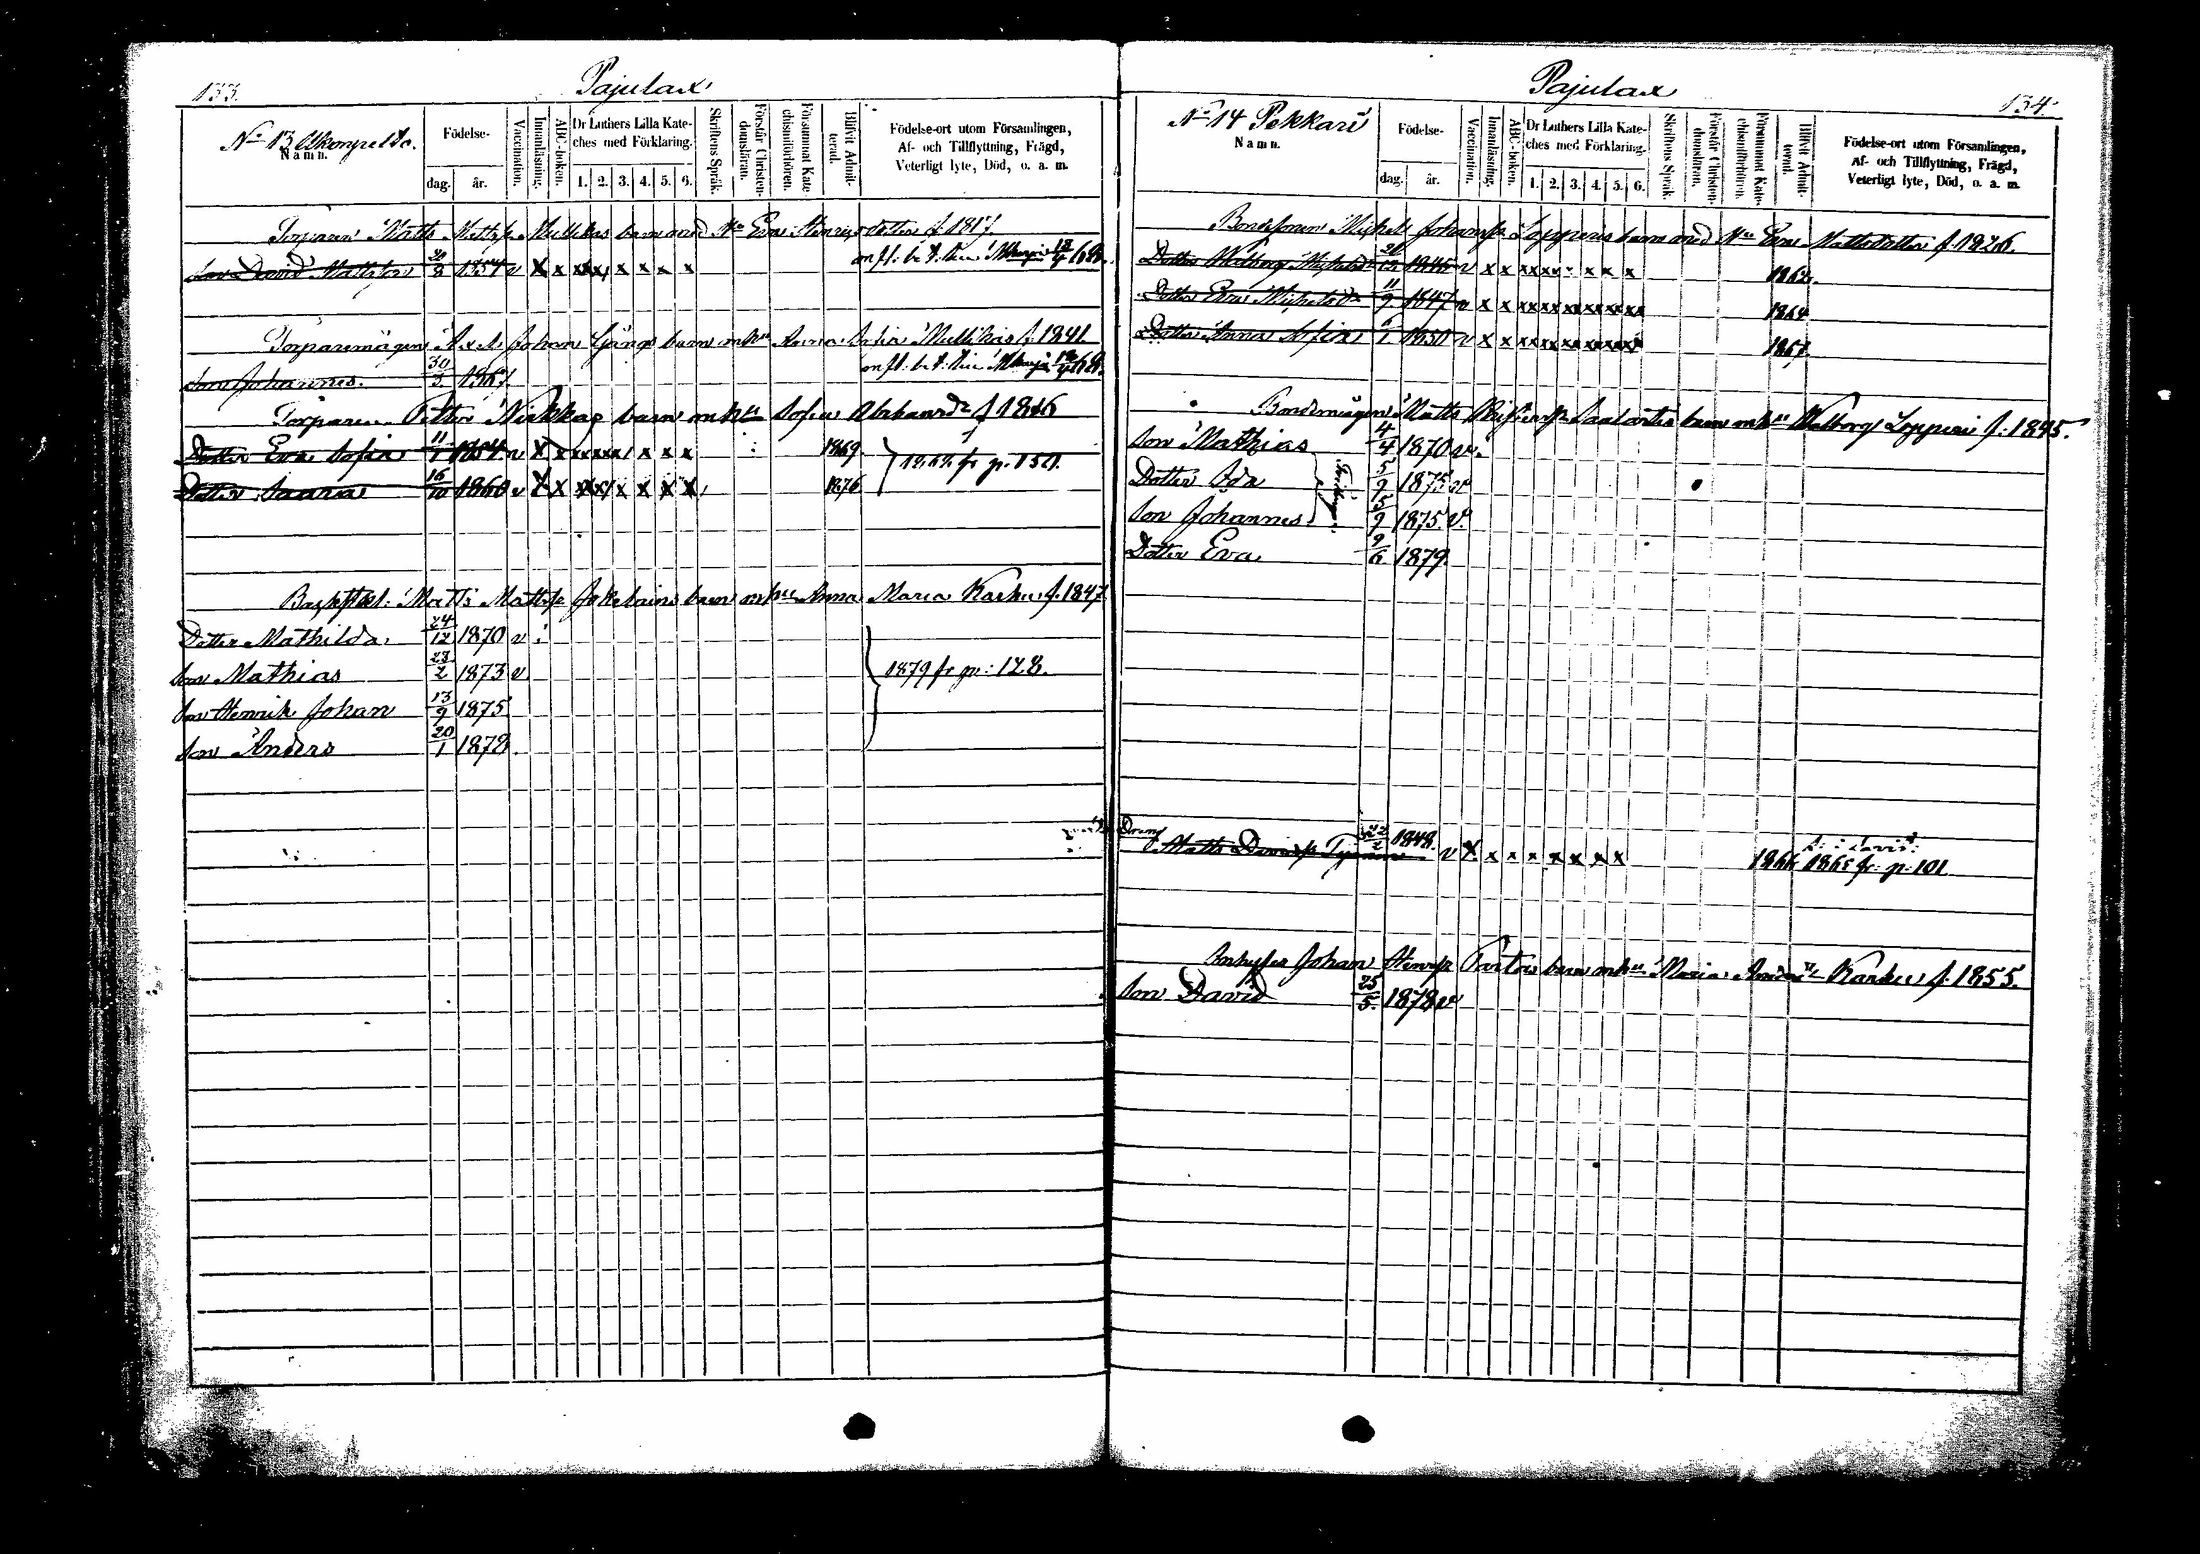 133.
Pajulax
No 13 Ukonpelto.
Namn.
Födelse-
dag.
år.
Vaccination.
Innanläsning.
ABC-boken.
Dr Luthers Lilla Kate-
ches med Förklaring.
1. 2. 3. 4. 5. 6.
Skriftens Språk.
Förstår Christen-
domsläran.
Försummat Kate-
chismiförhören.
Blifvit Admit-
terad.
Födelse-ort utom Församlingen,
Af- och Tillflyttning, Frägd,
Veterligt lyte, Död, o. a. m.
Torparen Matts Mattsp Mullikas barn med Hu Eva Henriksdotter f. 1817.
Son David Mattsson 20/8 1854 v x x x x x x x x
Torparemågen Johan Gångs barn m hu Anna Sofia Mullikas f. 1841.
Son Johannes. 30/3 1867.
Torparen Petter Niskkas barn m hu Sofia Abrahamsdr f 1826
Dotter Eva Sofia 11/1 1854 v x x x x x x x x 1869
1868 fr p. 150.
Dotter Saara 16/10 1860 v x x x x x x x x 1876
Matts Mattsp Jokelains barn m hu Anna Maria Karhu f. 1847
Dotter Mathilda 24/12 1870 v
Son Mathias 23/2 1873 v
1879 fr p: 128.
Son Henrik Johan 13/9 1875
Son Anders 20/1 1878
134.
Pajulax
No 14 Pekkari
Namn.
Födelse-
dag.
år.
Vaccination.
Innanläsning.
ABC-boken.
Dr Luthers Lilla Kate-
ches med Förklaring.
1. 2. 3. 4. 5. 6.
Skriftens Språk.
Förstår Christen-
domsläran.
Försummat Kate-
chismiförhören.
Blifvit Admit-
terad.
Födelse-ort utom Församlingen,
Af- och Tillflyttning, Frägd,
Veterligt lyte, Död, o. a. m.
Bondesonen Michel Johansp Lopperis barn med Hu Eva Mattsdotter f. 1826.
Dotter Walborg Michelsdr 1845 v x x x x x x x x 1862.
Dotter Eva Michelsdr 11/9 1847 v x x x x x x x x 1864
Dotter Anna Sofia 6/1 1850 v x x x x x x x x 1867.
Bondemågen Matts barn m hu Walborg Lopperi f: 1845.
Son Mathias 4/4 1870 v.
Dotter Ida 5/9 1875 v
Son Johannes 5/9 1875. v.
Dotter Eva 9/6 1879.
Dreng Matts Davidsp 22/2 1848. v x x x x x x x x 1866 1865 fr. p. 101
Inhyses Johan Henrsp barn m hu Maria Karhu f. 1855.
Son David 25/5. 1878 v